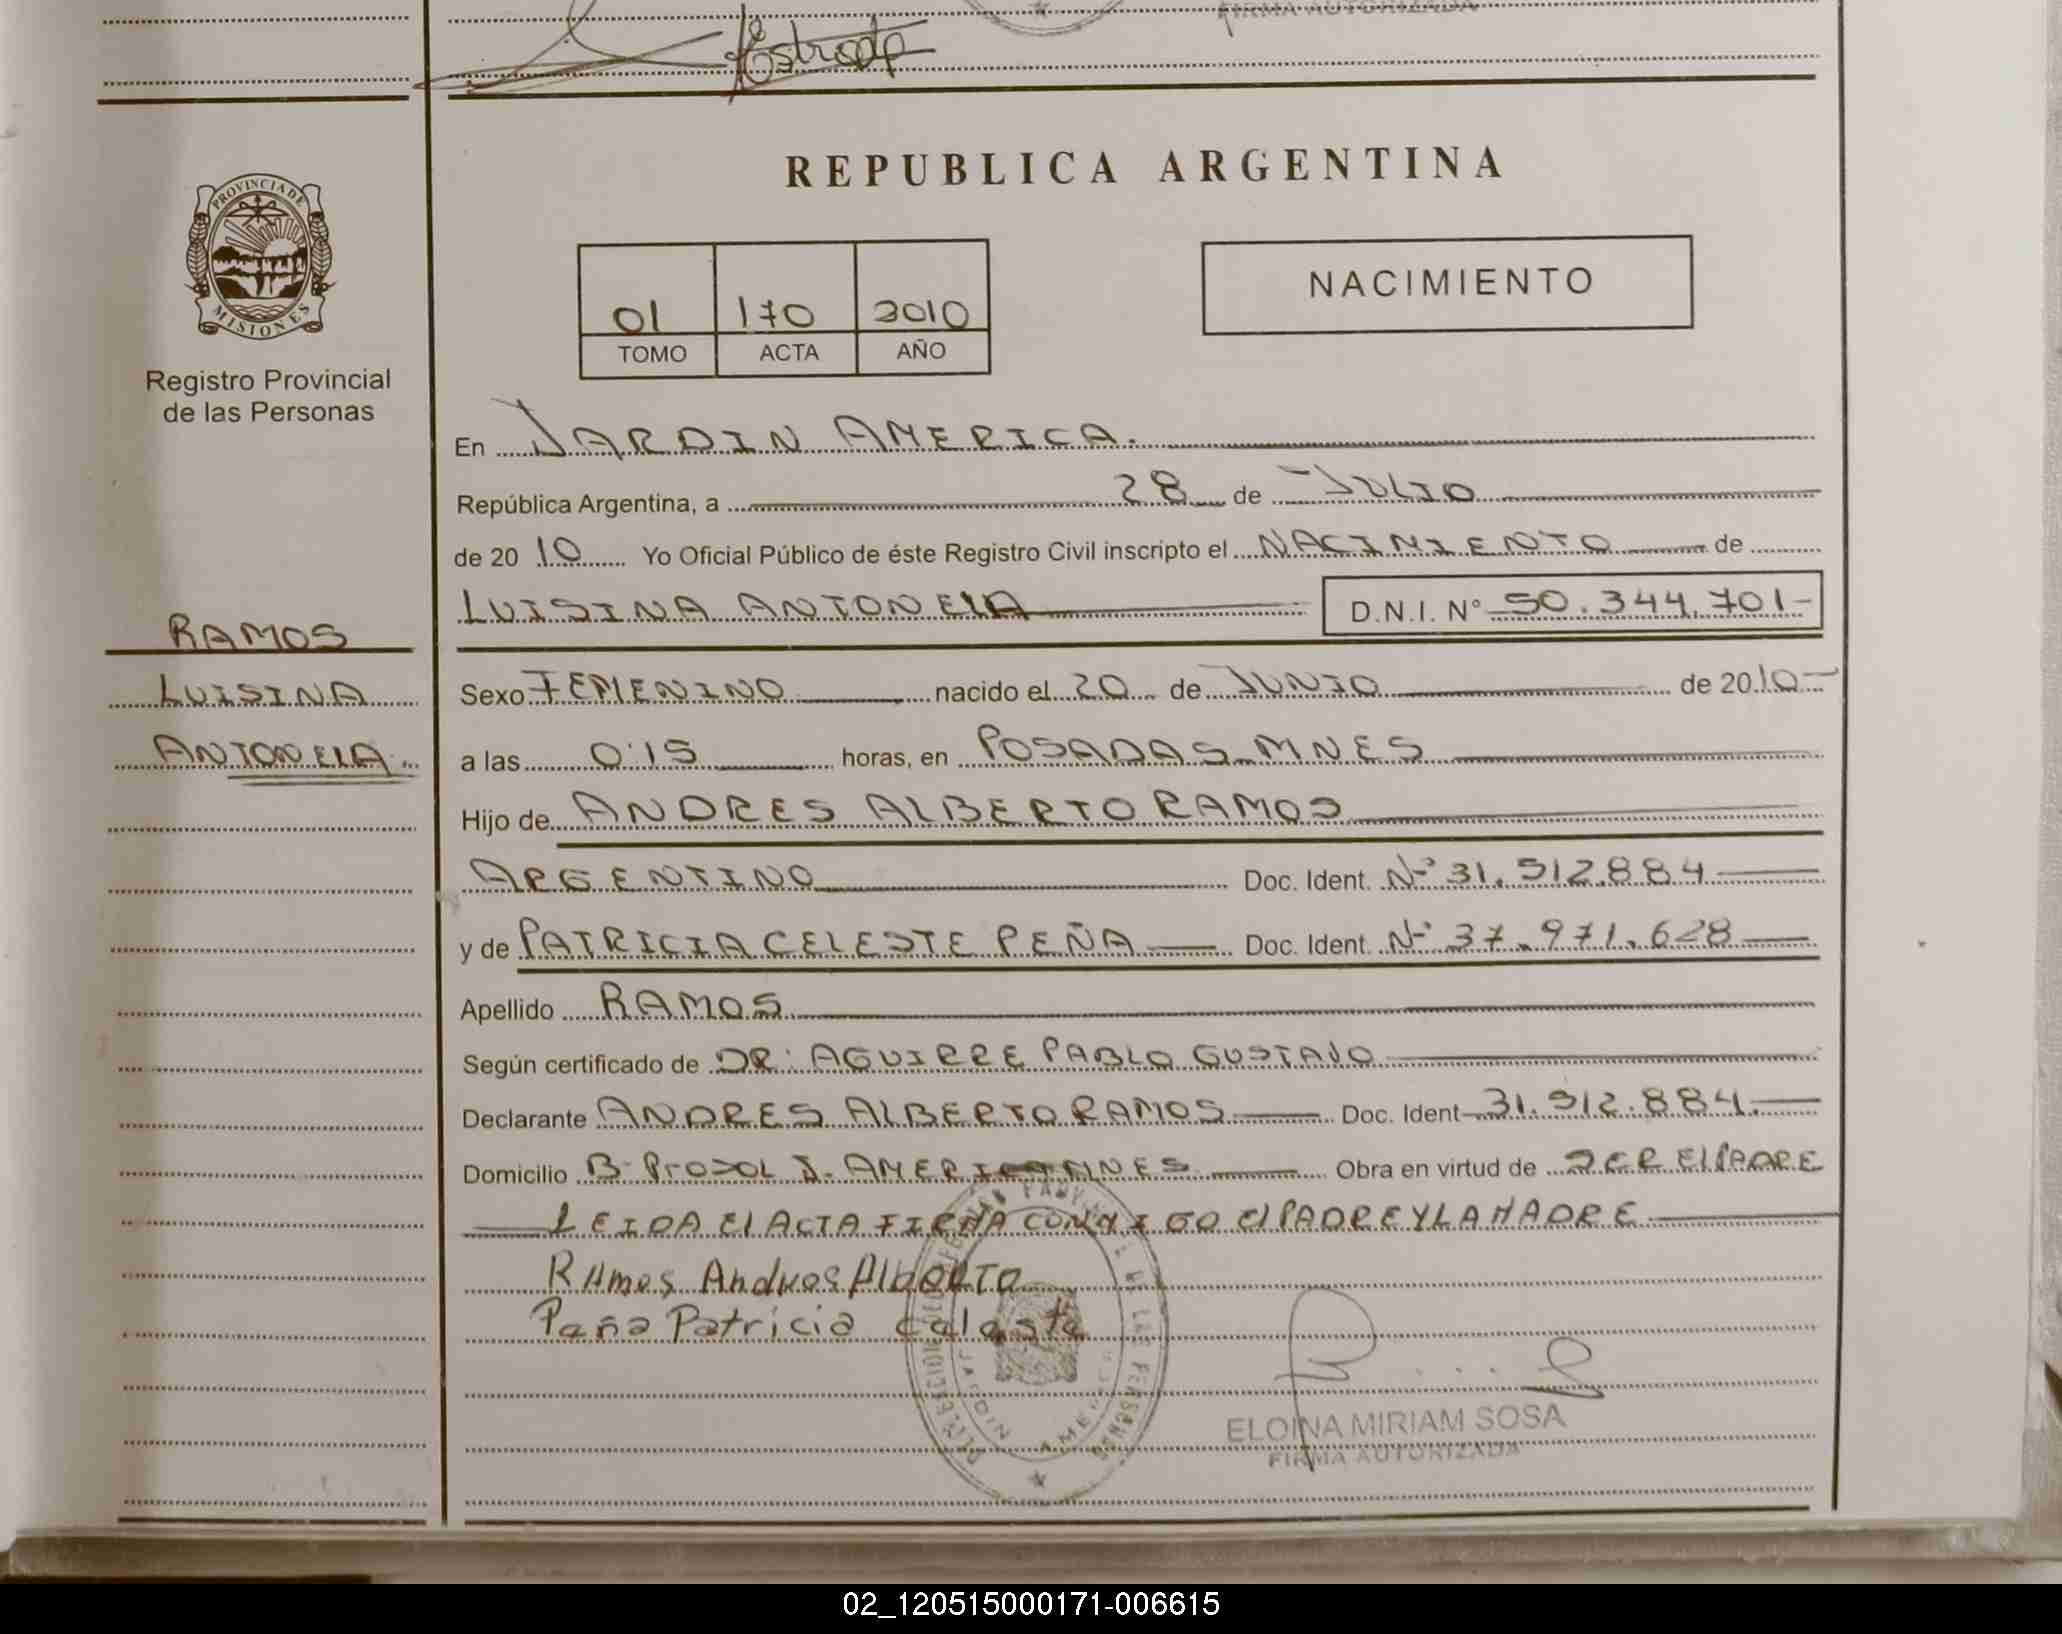 FIRMA AUTORIZADA
Estrada
PROVINCIA DE
MISIONES
Registro Provincial
de las Personas
RAMOS
LUISINA
ANTONELA
REPUBLICA ARGENTINA
01 170 2010
TOMO ACTA AÑO
NACIMIENTO
En JARDIN AMERICA.
República Argentina, a 28 de JULIO
de 20 10 Yo Oficial Público de éste Registro Civil inscripto el NACIMIENTO de
LUISINA ANTONELA D.N.I. N° 50.344.701-
Sexo FEMENINO nacido el 20 de JUNIO de 20 10-
a las 0:15 horas, en POSADAS-MNES
Hijo de ANDRES ALBERTO RAMOS
ARGENTINO Doc. Ident. Nº 31.512.884
y de PATRICIA CELESTE PEÑA Doc. Ident. Nº 37.971.628
Apellido RAMOS
Según certificado de DR: AGUIRRE PABLO GUSTAVO
Declarante ANDRES ALBERTO RAMOS Doc. Ident 31.512.884.
Domicilio B- PROSOL J. AMERICA MNES Obra en virtud de SER El PADRE
LEIDA El ACTA FIRMA CONMIGO El PADRE Y LA MADRE
RAmos Andres AlbeRTo
Peña Patricia Celeste
JARDIN AMERICA
ELOINA MIRIAM SOSA
FIRMA AUTORIZADA
02_120515000171-006615